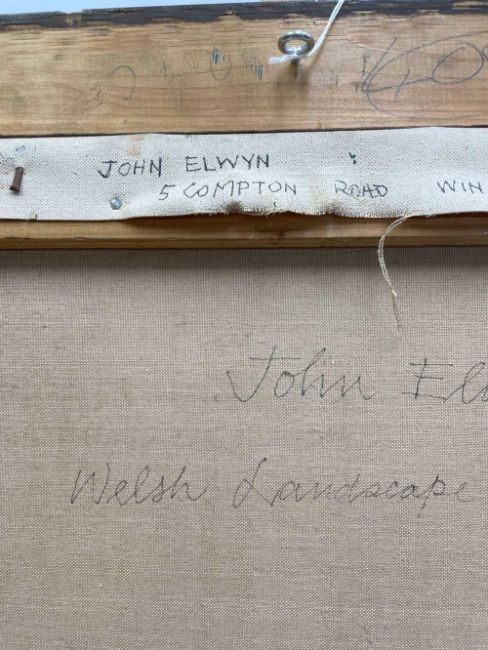 JOHN ELWYN
5 COMPTON ROAD WIN
John El
Welsh Landscape